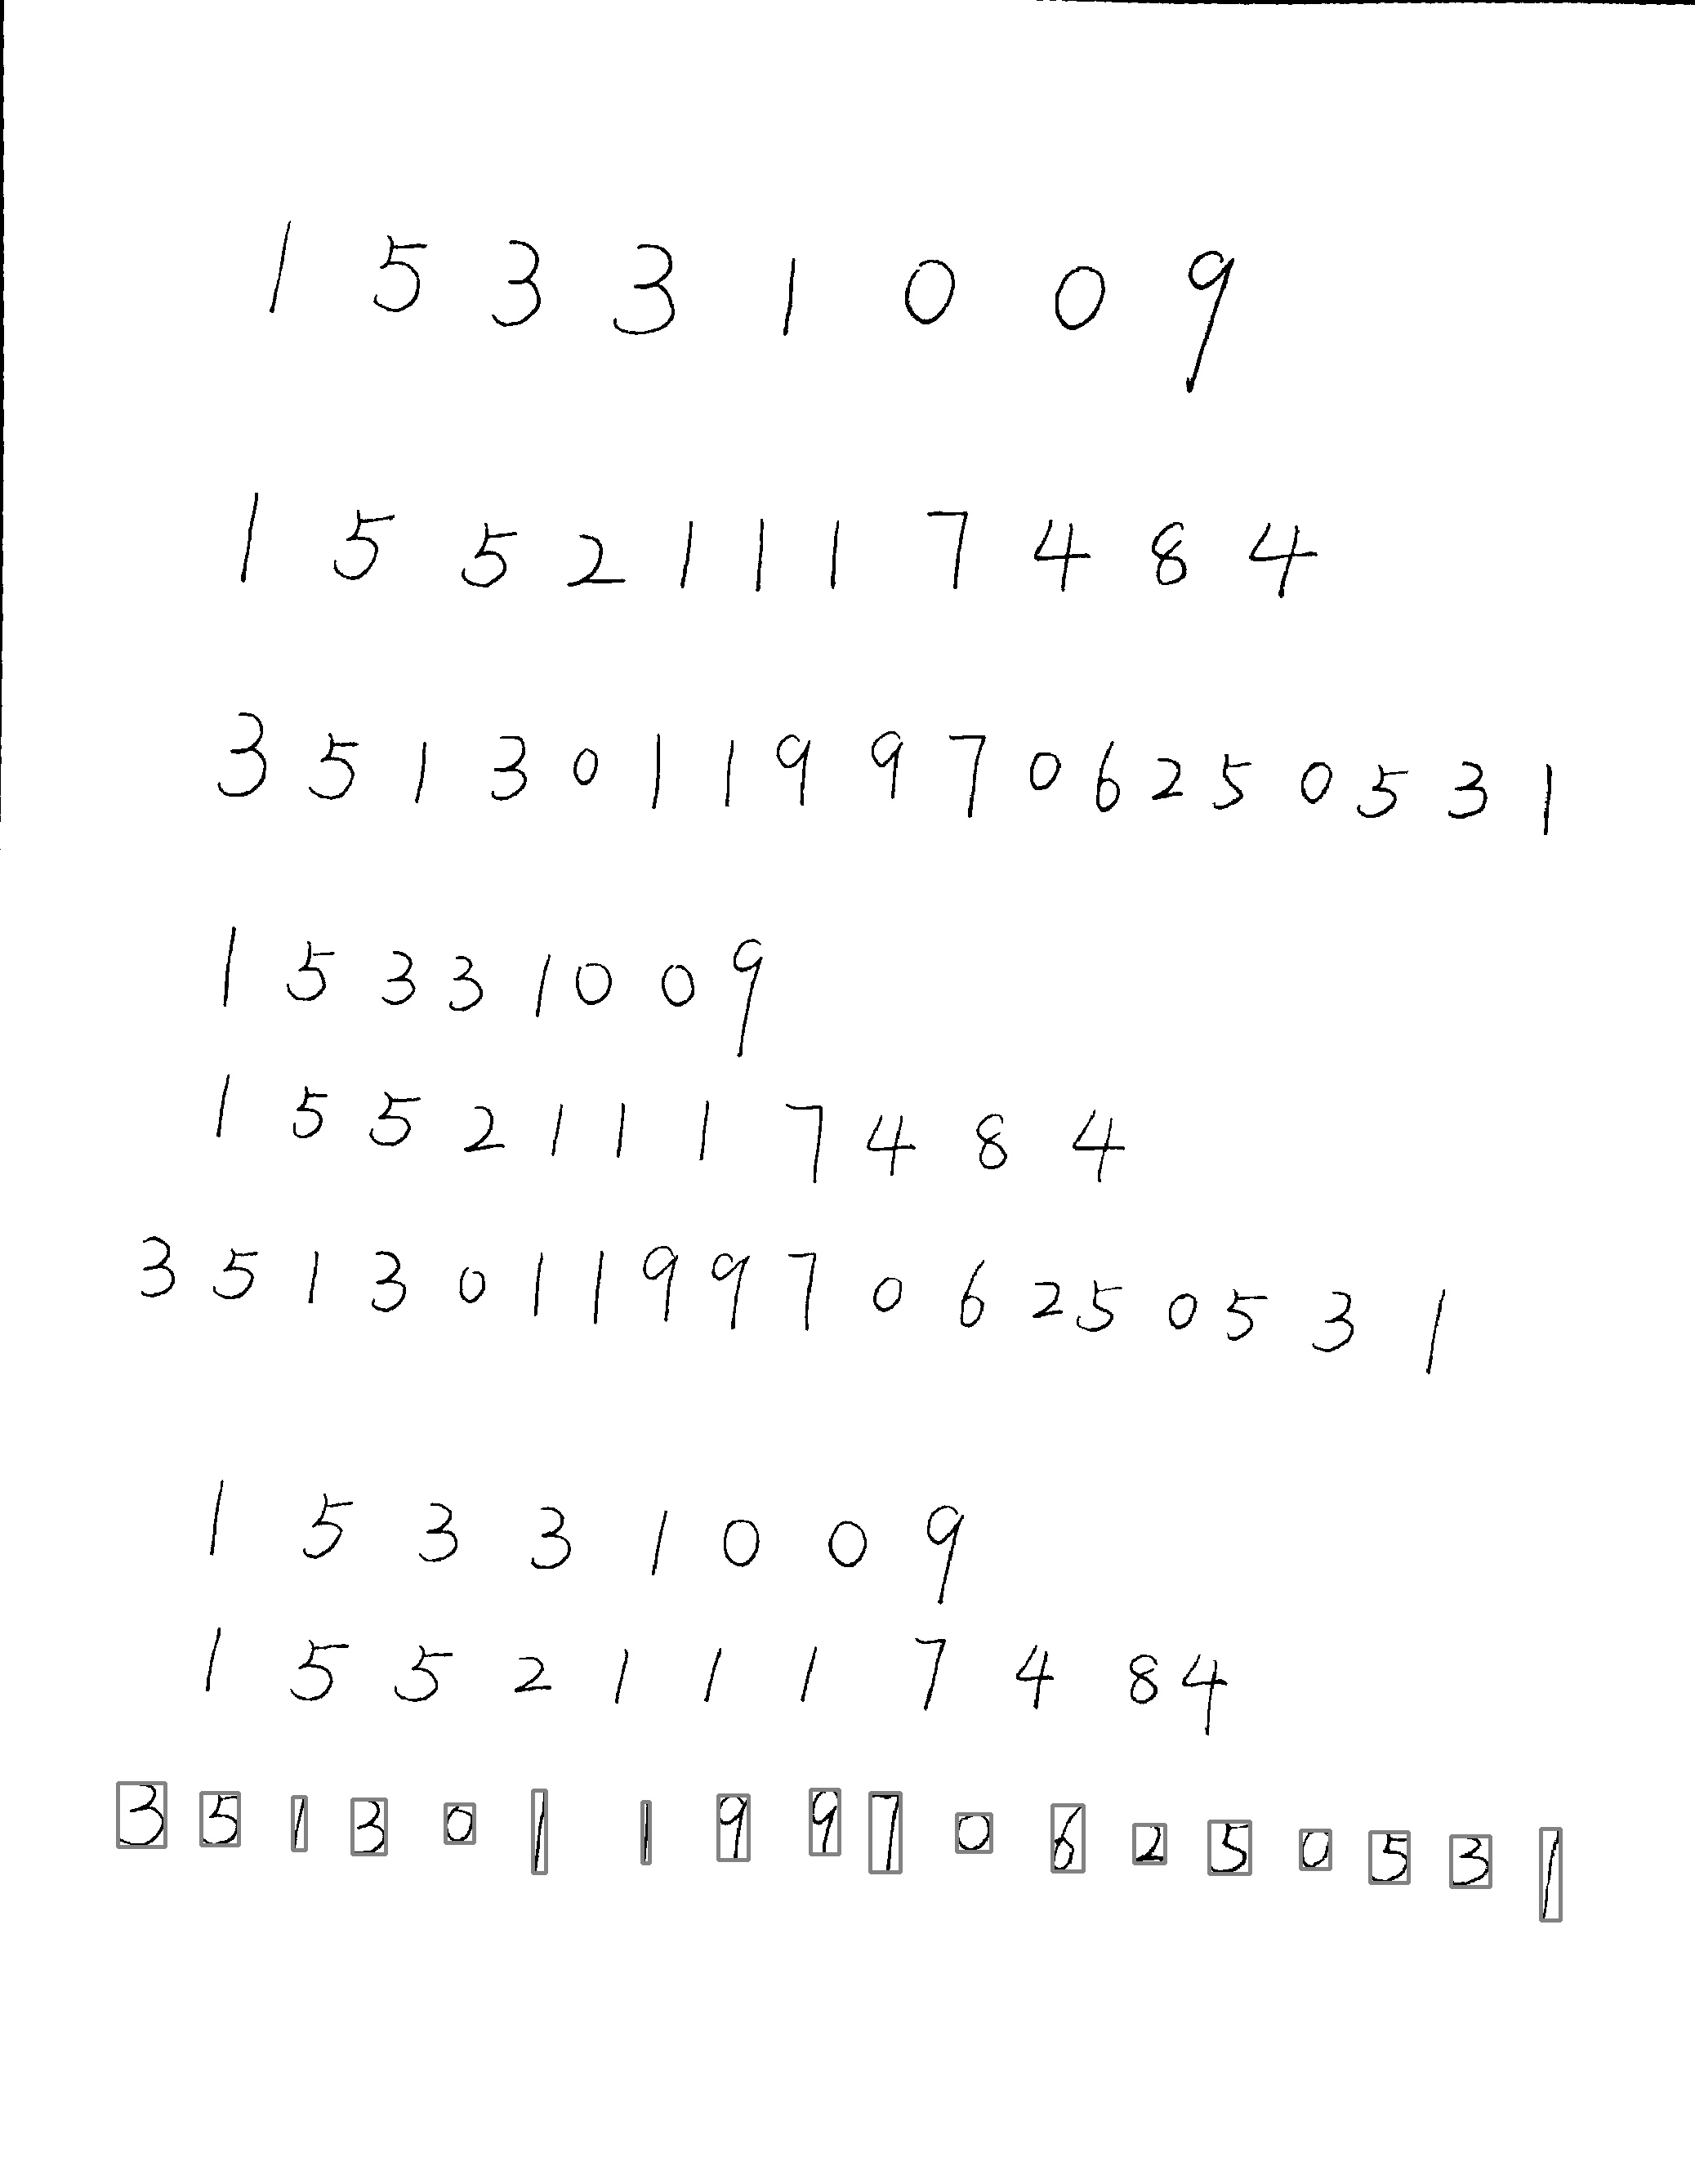 1 5 3 3 1 0 0 9
1 5 5 2 1 1 1 7 4 8 4
3 5 1 3 0 1 1 9 9 7 0 6 2 5 0 5 3 1
1 5 3 3 1 0 0 9
1 5 5 2 1 1 1 7 4 8 4
3 5 1 3 0 1 1 9 9 7 0 6 2 5 0 5 3 1
1 5 3 3 1 0 0 9
1 5 5 2 1 1 1 7 4 8 4
3 5 1 3 0 1 1 9 9 7 0 6 2 5 0 5 3 1